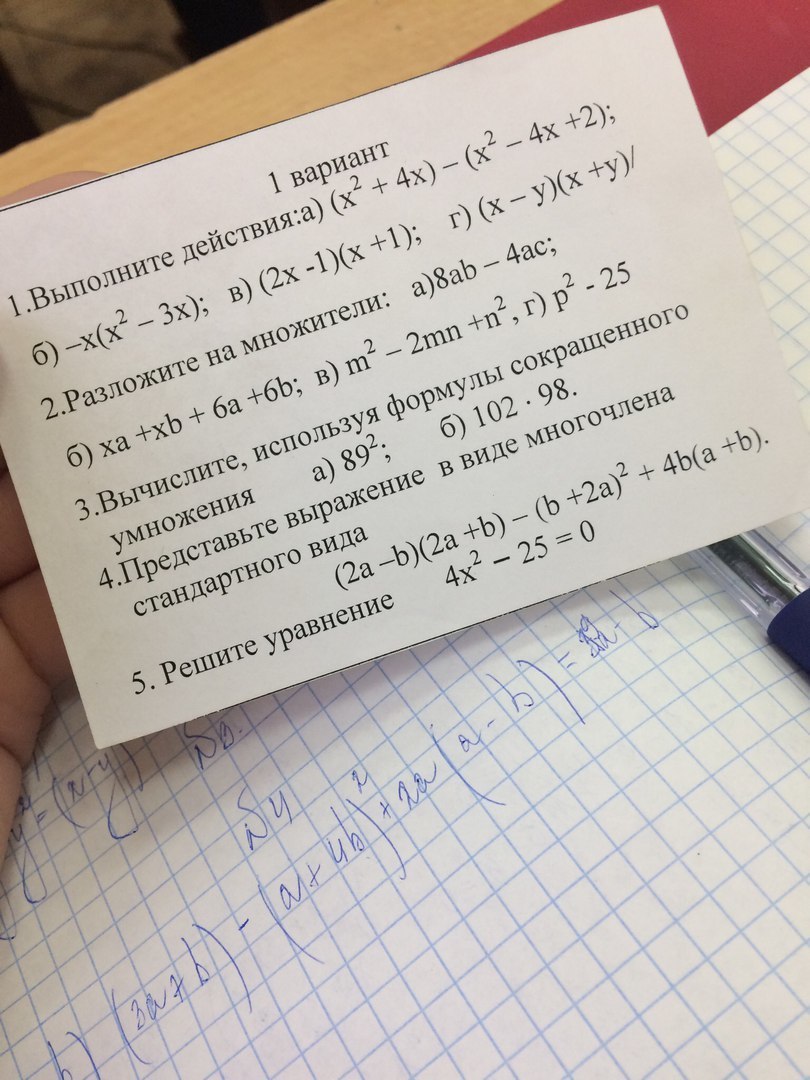 1 вариант
1.Выполните действия:а) (x² + 4x) – (x² – 4x +2);
б) –x(x² – 3x); в) (2x -1)(x +1); г) (x – y)(x +y)/
2.Разложите на множители: а)8ab – 4ac;
б) xa +xb + 6a +6b; в) m² – 2mn +n² , г) p² - 25
3.Вычислите, используя формулы сокращенного
умножения а) 89²; б) 102 · 98.
4.Представьте выражение в виде многочлена
стандартного вида
(2a –b)(2a +b) – (b +2a)² + 4b(a +b).
5. Решите уравнение 4x² – 25 = 0
(3a+b) - (a+4b)² + 2a (a-b) =